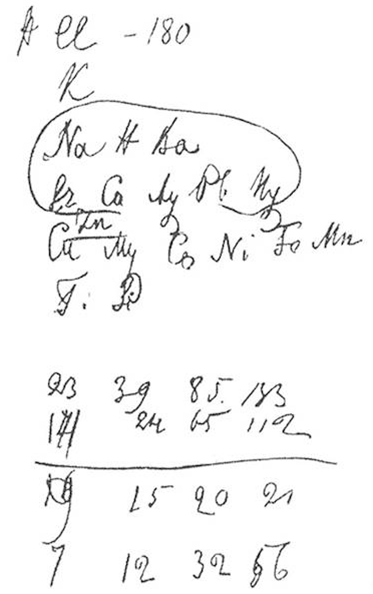 Cl -180
K
Na H Ba
Sr Ca Ag Pb Hg
Zn
Cu Mg Co Ni Fe Mn
23 39 85 133
24 65 112
15 20 21
7 12 32 56